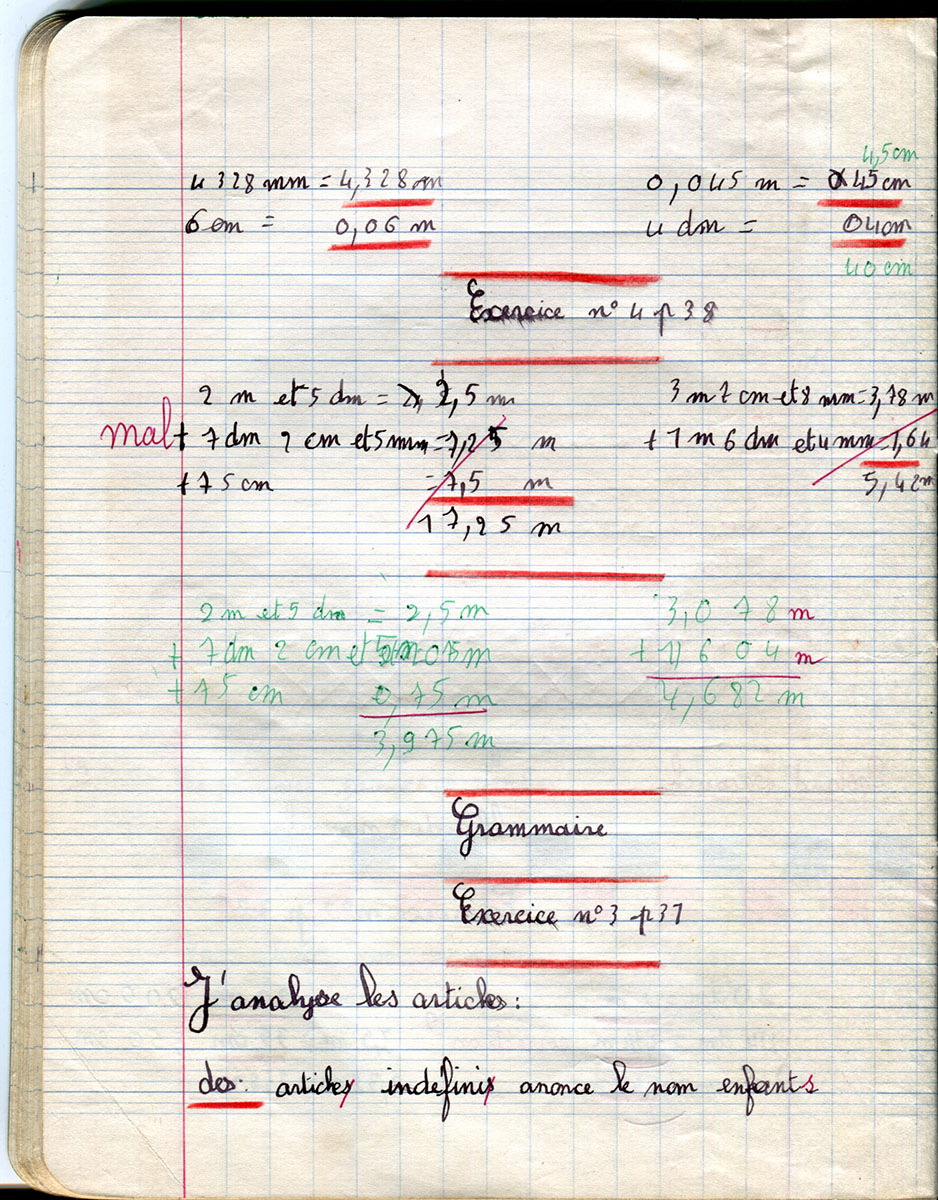 4,5 cm
4 328 mm = 4,328 m 0,045 m = 045 cm
6 cm = 0,06 m 4 dm = 04 cm
40 cm
Exercice n° 4 p 38
2 m et 5 dm = 2,5 m 3 m 7 cm et 8 mm = 3,78 m
mal + 7 dm 2 cm et 5 mm = 7,25 m + 1 m 6 dm et 4 mm = 1,64
+ 75 cm = 7,5 m 5,42 m
17,25 m
2 m et 5 dm = 2,5 m 3,078 m
+ 7 dm 2 cm et m + 1,604 m
+ 75 cm 0,75 m 4,682 m
3,975 m
Grammaire
Exercice n° 3 p 37
J'analyse les articles :
des : articles indéfinis anonce le nom enfants